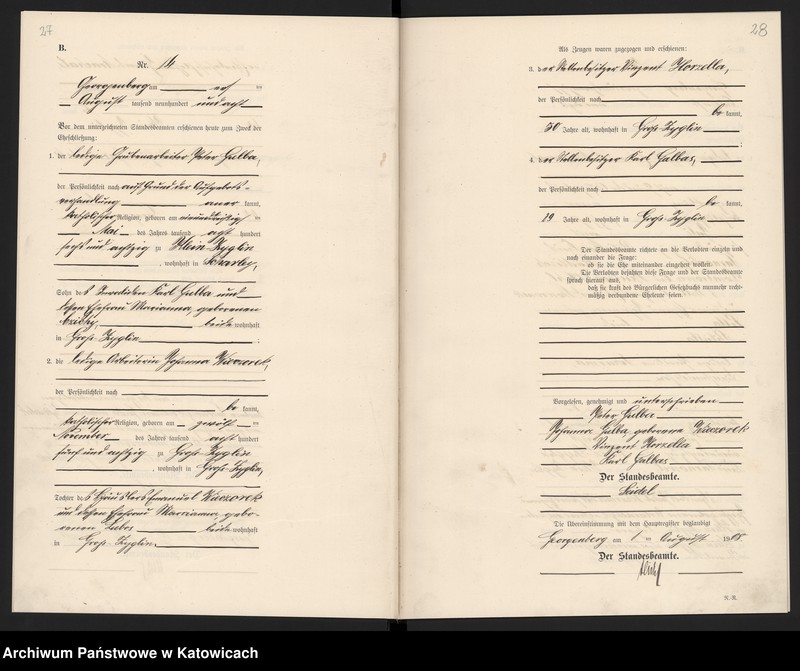 27
B.
Nr. 14
Georgenberg am
August tausend neunhundert und acht
Vor dem unterzeichneten Standesbeamten erschienen heute zum Zweck der
Eheschließung:
1. der ledige Grubenarbeiter Peter Gulba,
der Persönlichkeit nach auf Grund der Aufgebots-
verhandlung aner kannt,
katholischer Religion, geboren am einunddreißig ten
Mai des Jahres tausend acht hundert
sechs und achtzig zu Klein Zyglin
, wohnhaft in Scharley,
Sohn des Karl Gulba und
dessen Ehefrau Marianna, geborenen
beide wohnhaft
in Groß-Zyglin
2. die ledige Arbeiterin Johanna Wieczorek,
der Persönlichkeit nach
be kannt,
katholischer Religion, geboren am zwölf ten
November des Jahres tausend acht hundert
fünf und achtzig zu Groß Zyglin
, wohnhaft in Groß-Zyglin,
Tochter des Häuslers Emanuel Wieczorek
und dessen Ehefrau Marianna gebo-
renen beide wohnhaft
in Groß-Zyglin.
28
Als Zeugen waren zugezogen und erschienen:
3. der Stellenbesitzer Vinzent Horzella,
der Persönlichkeit nach
be kannt,
50 Jahre alt, wohnhaft in Groß-Zyglin
;
4. der Stellenbesitzer Karl Galbas,
der Persönlichkeit nach
be kannt,
29 Jahre alt, wohnhaft in Groß-Zyglin
Der Standesbeamte richtete an die Verlobten einzeln und
nach einander die Frage:
ob sie die Ehe miteinander eingehen wollen.
Die Verlobten bejahten diese Frage und der Standesbeamte
sprach hierauf aus,
daß sie kraft des Bürgerlichen Gesetzbuchs nunmehr recht-
mäßig verbundene Eheleute seien.
Vorgelesen, genehmigt und unterschrieben
Peter Gulba
Johanna Gulba geborene Wieczorek
Vinzent Horzella
Karl Galbas
Der Standesbeamte.
Seidel
Die Übereinstimmung mit dem Hauptregister beglaubigt
Georgenberg am 1 ten August 1908
Der Standesbeamte.
Seidel
Archiwum Państwowe w Katowicach